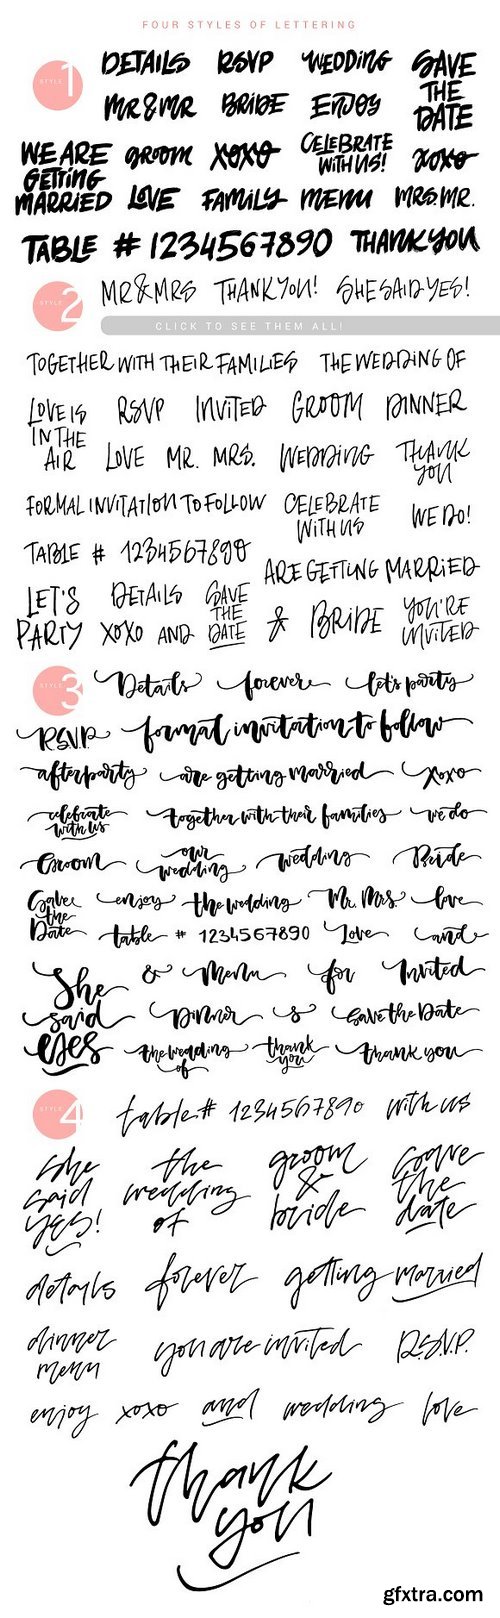 FOUR STYLES OF LETTERING
STYLE 1
DETAILS RSVP WEDDING SAVE THE DATE
MR & MR BRIDE ENJOY
WE ARE GETTING MARRIED groom XOXO CELEBRATE WITH US! xoxo
LOVE FAMILY MENU MRS. MR.
TABLE # 1234567890 THANK YOU
STYLE 2
MR & MRS THANK YOU! SHE SAID YES!
CLICK TO SEE THEM ALL!
TOGETHER WITH THEIR FAMILIES THE WEDDING OF
LOVE IS IN THE AIR RSVP INVITED GROOM DINNER
LOVE MR. MRS. WEDDING THANK YOU
FORMAL INVITATION TO FOLLOW CELEBRATE WITH US WE DO!
TABLE # 1234567890
ARE GETTING MARRIED
LET'S PARTY DETAILS SAVE THE DATE & BRIDE YOU'RE INVITED
XOXO AND
STYLE 3
Details forever let's party
R.S.V.P. formal invitation to follow
afterparty are getting married xoxo
celebrate with us together with their families we do
Groom our wedding wedding Bride
Save the Date enjoy the wedding Mr. Mrs. love
table # 1234567890 Love and
She said yes & Menu for Invited
Dinner & Save the Date
the wedding of thank you thank you
STYLE 4
table # 1234567890 with us
she said yes! the wedding of groom & bride save the date
details forever getting married
dinner menu you are invited R.S.V.P.
enjoy xoxo and wedding love
thank you
gfxtra.com